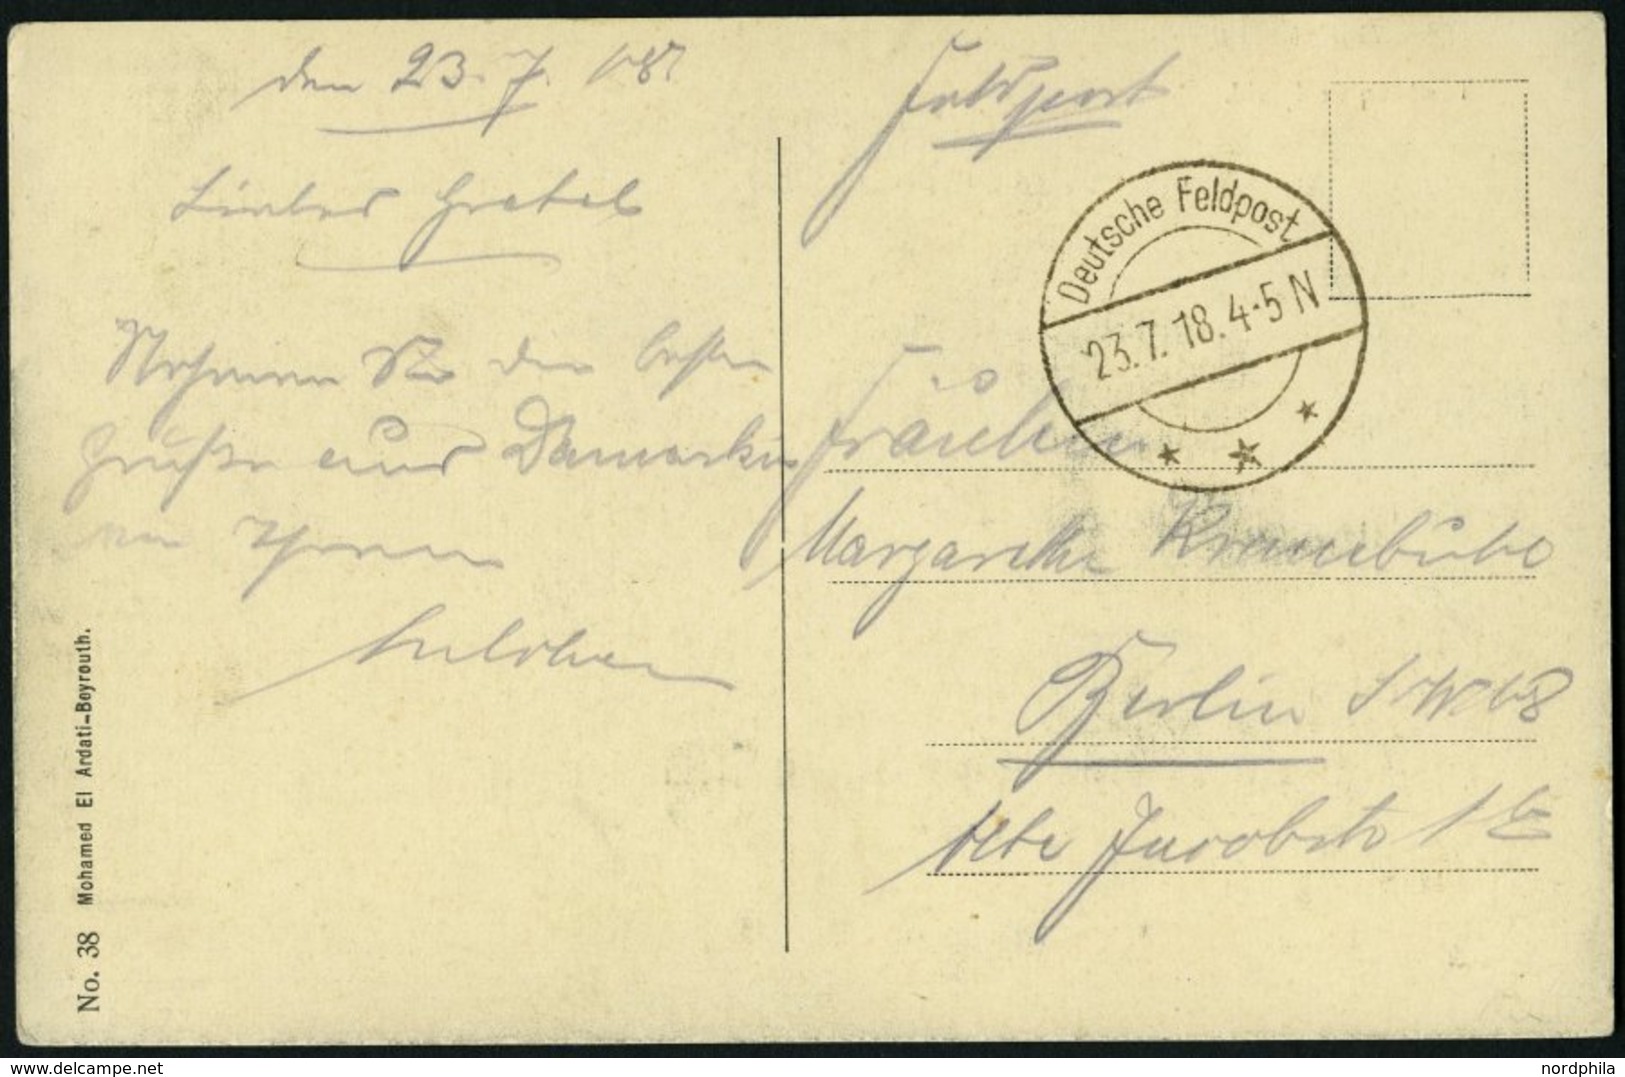 den 23. 7. 18.
Liebes Gretel
Nehmen Sie die besten
Grüße aus Damaskus
von Ihrem
Feldpost
Deutsche Feldpost
23.7.18.4-5 N
Fräulein
Margarethe
Berlin SW 68
Alte Jacobstr
No. 38 Mohamed El Ardati-Beyrouth.
www.delcampe.net
nordphila